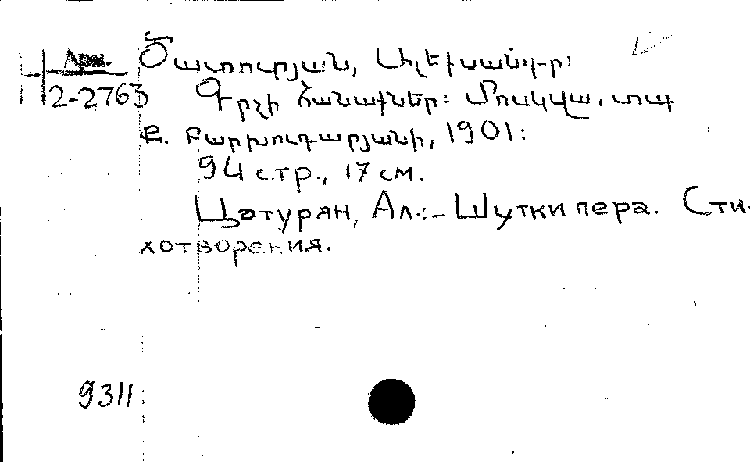 Арм.
2-2763
Ծատուրյան, Ալեքսանդր:
Գրչի հանաքներ: Մոսկվա, տպ
Բ. Բարխուդարյանի, 1901:
94 стр., 17 см.
Цатурян, Ал.:- Шутки пера. Сти-
хотворения.
9311